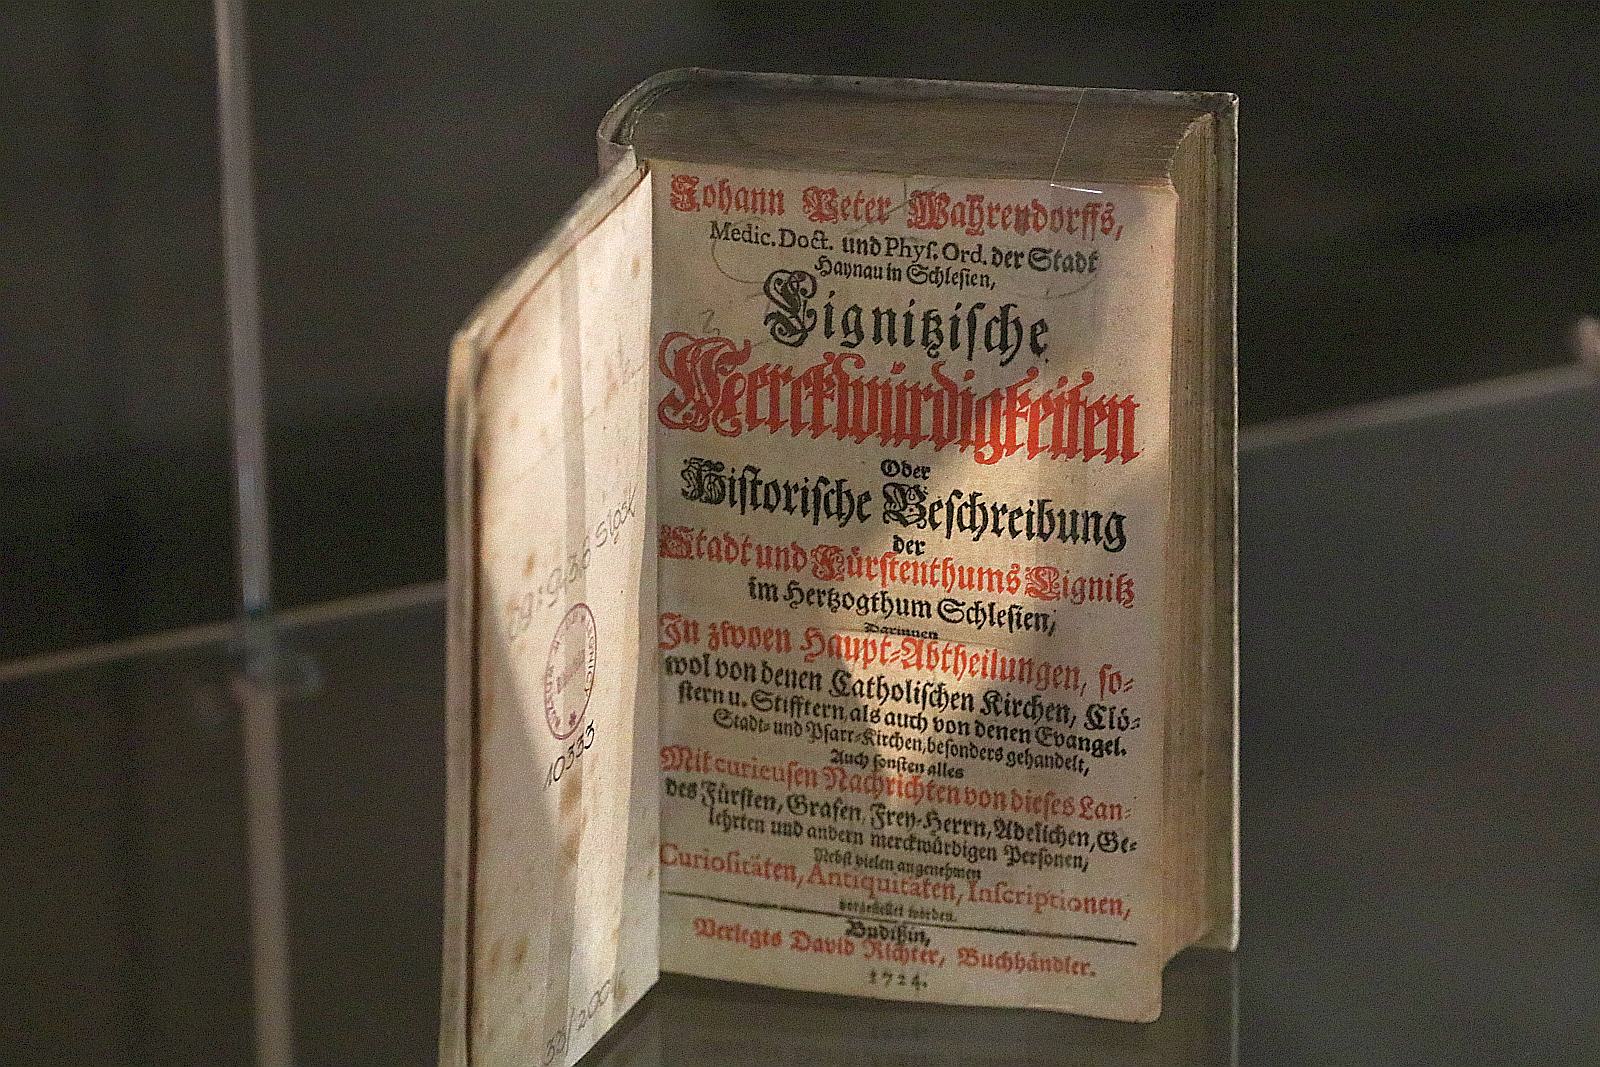 Johann Peter Wahrendorffs,
Medic. Doct. und Phys. Ord. der Stadt
Haynau in Schlesien,
Lignitzische
Merckwürdigkeiten
Oder
Historische Beschreibung
der
Stadt und Fürstenthums Lignitz
im Hertzogthum Schlesien,
Darinnen
In zwoen Haupt-Abtheilungen, so-
wol von denen Catholischen Kirchen, Clö-
stern u. Stifftern, als auch von denen Evangel.
Stadt- und Pfarr-Kirchen, besonders gehandelt,
Auch sonsten alles
Mit curieusen Nachrichten von dieses Lan-
des Fürsten, Grafen, Frey-Herrn, Adelichen, Ge-
lehrten und andern merckwürdigen Personen,
Nebst vielen angenehmen
Curiositäten, Antiquitäten, Inscriptionen,
vorgestellet worden.
Budißin,
Verlegts David Richter, Buchhändler.
1724.
10333